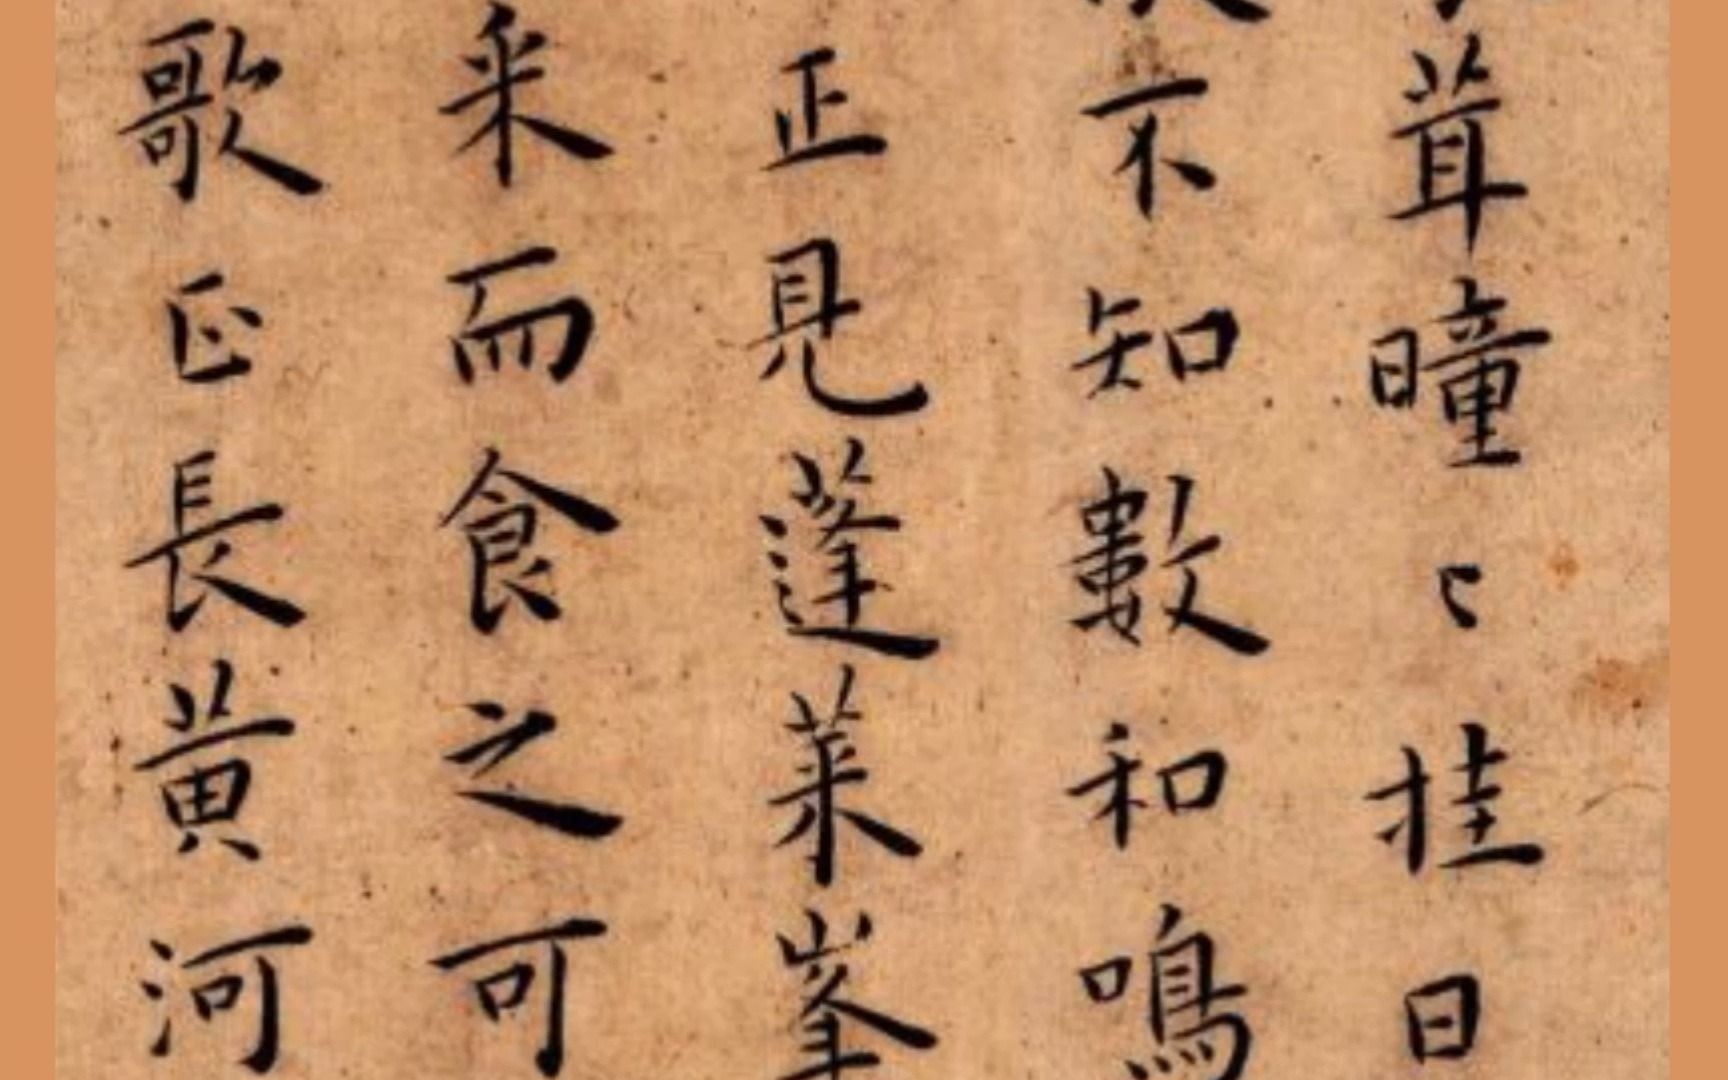 茸曈〻挂日
不知數和鳴
正見蓬萊峯
采而食之可
歌正長黄河